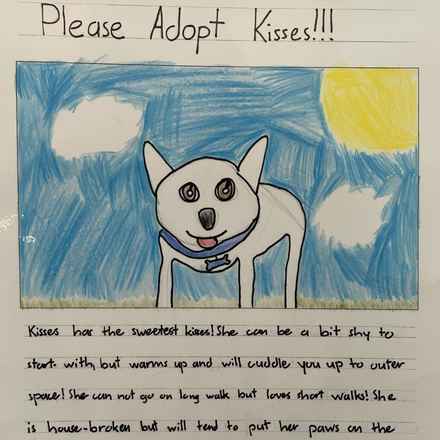 Please Adopt Kisses!!!
Kisses has the sweetest kisses! She can be a bit shy to
start with, but warms up and will cuddle you up to outer
space! She can not go on long walk but loves short walks! She
is house-broken but will tend to put her paws on the